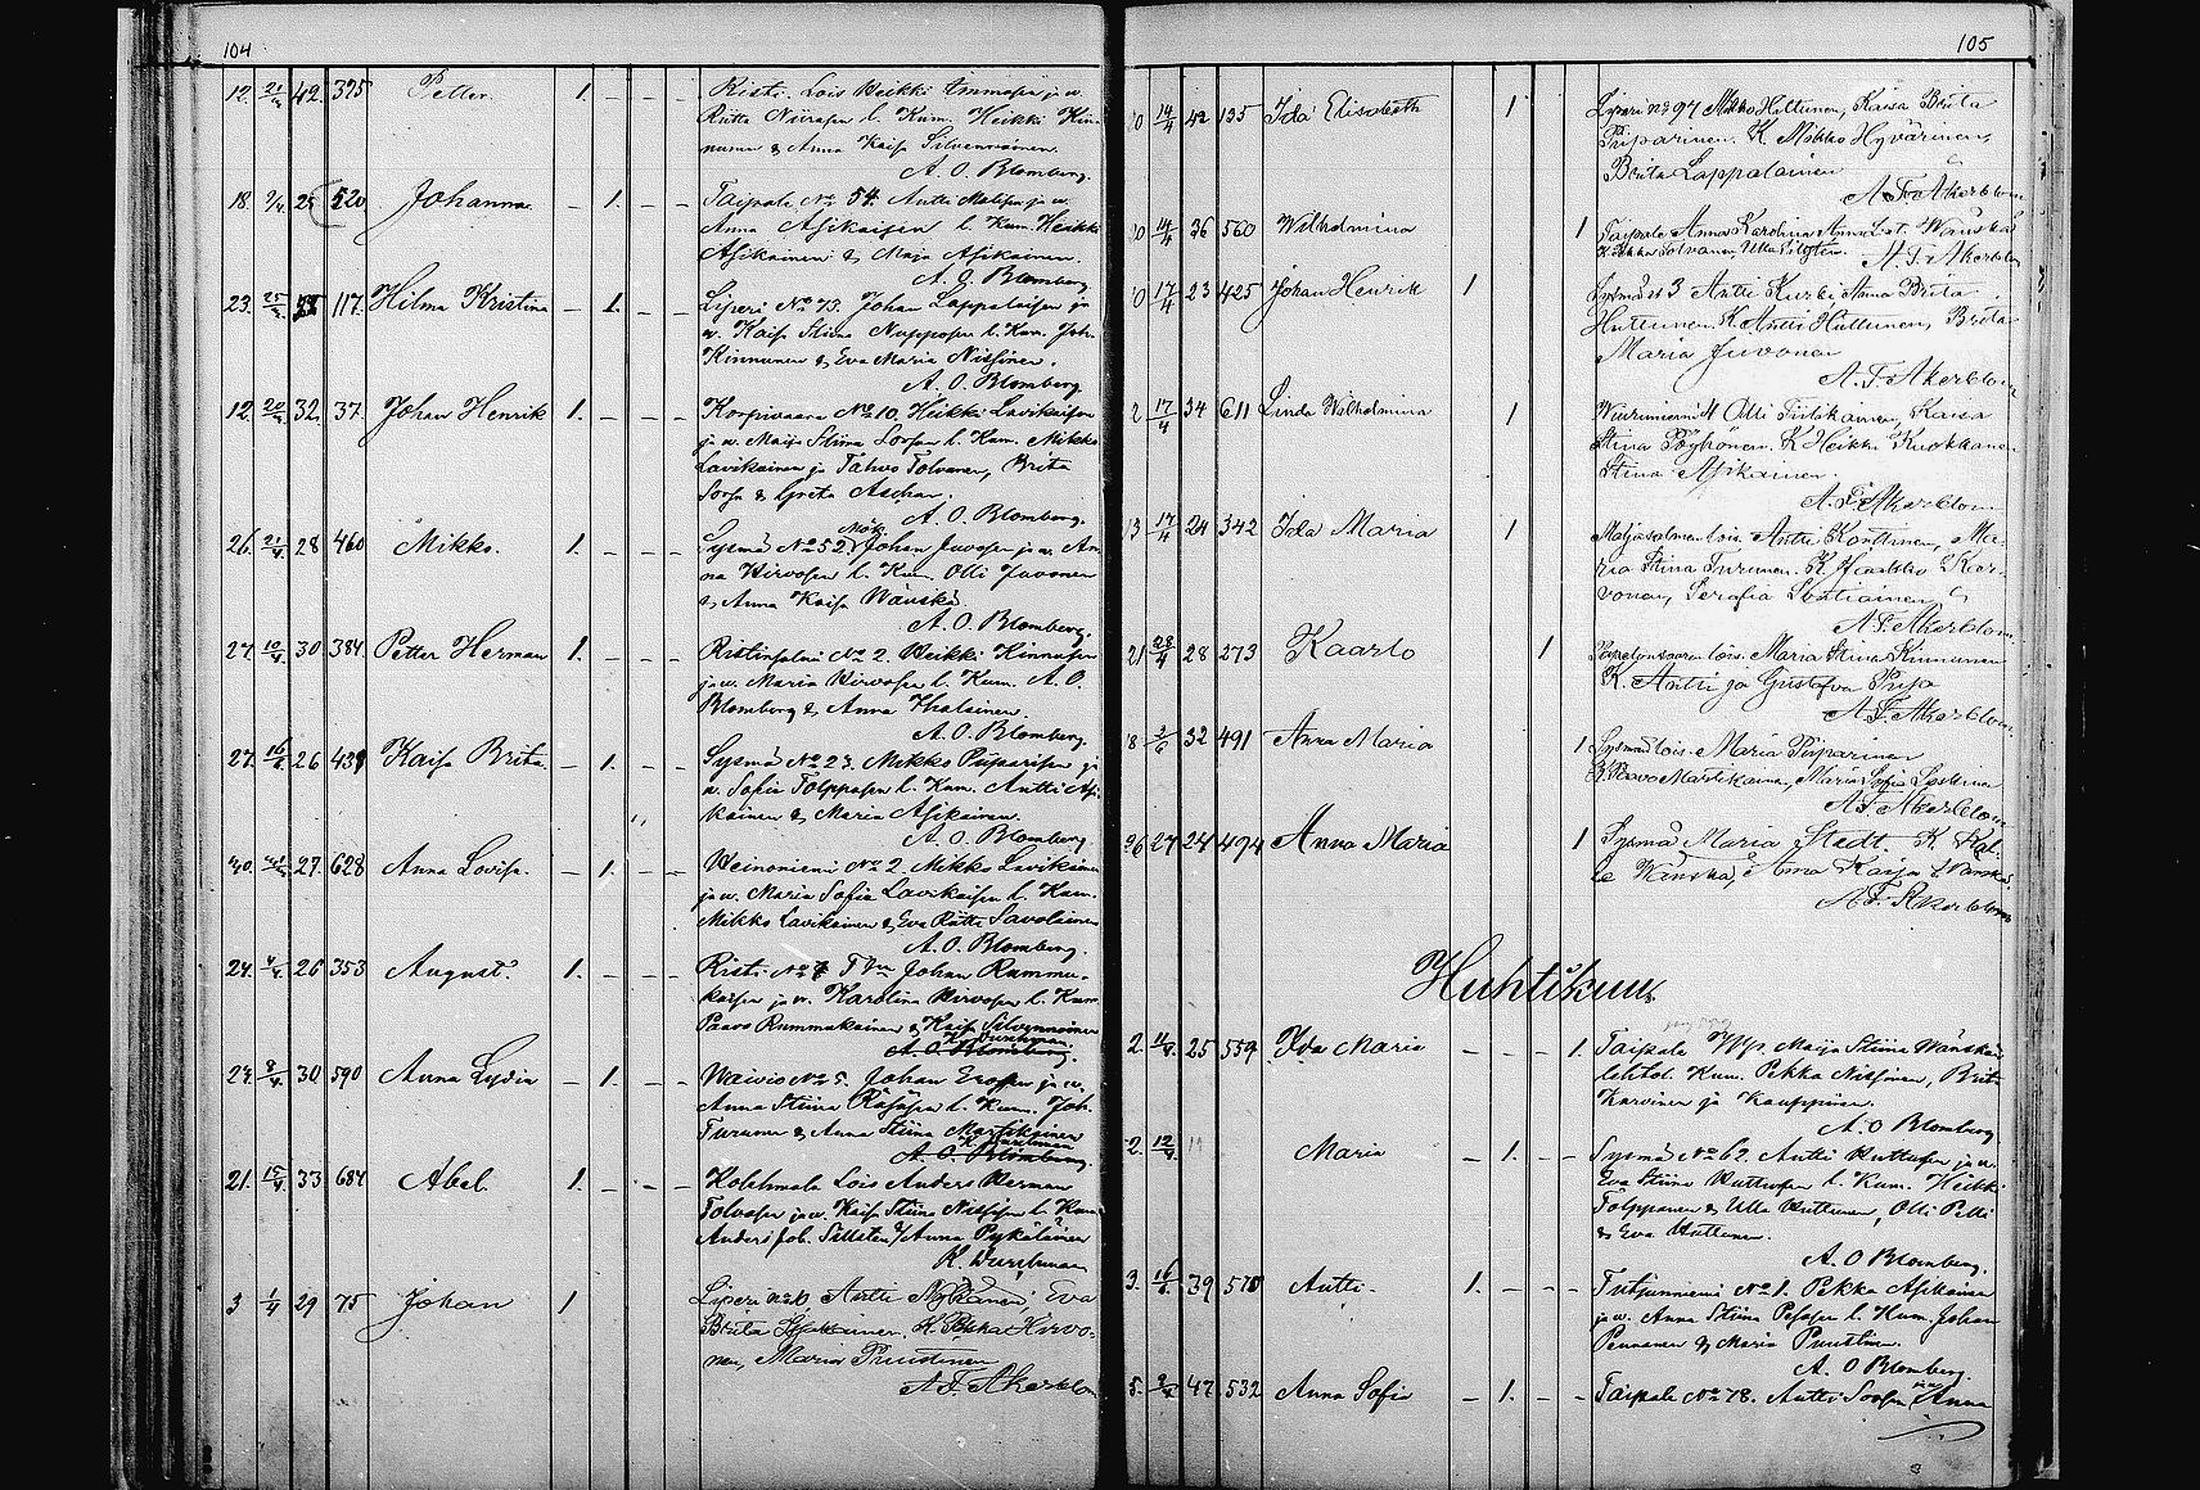 104
12. 21/4 42. 375 Petter. 1. – – – Risti. Lois Heikki Immosen ja w.
Riitta Niirasen l. Kum. Heikki Kin-
nunen & Anna Kaisa Silvennoinen.
A. O. Blomberg.
18. 9/4 25 520. Johanna. – 1. – – Taipale No 54. Antti Malisen ja w.
Anna Asikaisen l. Kum. Heikki
Asikainen & Maija Asikainen.
A. O. Blomberg.
23. 25/4 117. Hilma Kristina – 1. – – Liperi No 73. Johan Lappalaisen ja
w. Kaisa Stiina Nupposen l. Kum. Joh.
Kinnunen & Eva Maria Nissinen.
A. O. Blomberg.
12. 20/4 32. 37. Johan Henrik 1. – – – Korpivaara No 10. Heikki Lavikaisen
ja w. Maija Stiina Sorsan l. Kum. Mikko
Lavikainen ja Tahvo Tolvanen, Brita
Sorsa & Greta Aschan.
A. O. Blomberg.
Mök.
26. 21/4. 28 460 Mikko. 1. – – – Sysmä No 52. Johan Juvosen ja w. An-
na Hirvosen l. Kum. Olli Juvonen
& Anna Kaisa Wänskä.
A. O. Blomberg.
27. 10/4. 30 384. Petter Herman 1. – – – Ristinsalmi No 2. Heikki Kinnusen
ja w. Maria Hirvosen l. Kum. A. O.
Blomberg & Anna Ihalainen.
A. O. Blomberg.
27. 16/4. 26 439 Kaisa Brita. – 1. – – Sysmä No 23. Mikko Piiparisen ja
w. Sofia Tolppasen l. Kum. Antti Asi-
kainen & Maria Asikainen.
A. O. Blomberg
27. 628 Anna Lovisa. – 1. – – Heinoniemi No 2. Mikko Lavikainen
ja w. Maria Sofia Lavikaisen l. Kum.
Mikko Lavikainen & Eva Riitta Savolainen
A. O. Blomberg.
24. 4/4. 26 353 August. 1. – – – Risti No Johan Rummu-
kaisen ja w. Karolina Hirvosen l. Kum.
Paavo Rummukainen & Kaisa Silvennoinen
K. Durchman.
A. O. Blomberg.
24. 8/4. 30 590 Anna Lydia – 1. – – Waivio No 5. Johan Erosen ja w.
Anna Stiina Räsäsen l. Kum. Joh.
Turunen & Anna Stiina Martikainen
K. Durchman
A. O. Blomberg.
21. 15/4. 33 684 Abel. 1. – – – Kolehmala Lois Anders Herman
Tolvasen ja w. Kaisa Stiina Nissisen l. Kum
Anders Joh. Sillsten & Anna Pykäläinen
K. Durchman
3 1/4 29 75 Johan 1 Liperi Antti Nykänen, Eva
Brita K. Pekka Hirvo-
nen, Maria Puustinen
A. F. Åkerblom
105
10 14/4 42 135 Ida Elisabeth 1 Liperi no 97 Mikko Hiltunen, Kaisa Brita
Piiparinen. K. Mikko Hyvärinen,
Brita Lappalainen
A. F. Åkerblom
10 14/4 36 560 Wilhelmina 1 Taipale Anna Karolina Anna L.t. Wänskä
K. Pekka Tolvanen, Ulla Sillsten. A. F. Åkerblom
10 17/4 23 425 Johan Henrik 1 Sysmä 3 Antti Kurki Anna Brita
Huttunen. K. Antti Huttunen, Brita
Maria Juvonen
A. F. Åkerblom
2 17/4 34 611 Linda Wilhelmina 1 Olli Tiilikainen, Kaisa
Stina Pöyhönen. K Heikki Kuokkanen
Stina Asikainen.
A. F. Åkerblom
13 17/4 24 342 Ida Maria 1 Matjasalmen lois. Antti Konttinen, Ma-
ria Stina Turunen. K. Jaakko Kar-
vonen, Serafia
A. F. Åkerblom.
21 28/4 28 273 Kaarlo 1 lois. Maria Stina Kinnunen
K. Antti ja Gustafva Piipo
A. F. Åkerblom.
18 3/6 32 491 Anna Maria 1 Sysmä lois. Maria Piiparinen
K. Paavo Martikainen, Maria Sofia
A. F. Åkerblom
26 27 24 494 Anna Maria 1 Sysmä Maria Stedt. K. Kal-
le Wänskä, Anna Kaisa Wänskä.
A. F. Åkerblom
Huhtikuu.
2. 11/4. 25 559 Ida Maria – – – 1. Taipale Maija Stiina Wänskän
lehtol. Kum. Pekka Nissinen, Brita
Karvinen ja Kauppinen.
A. O Blomberg
2. 12/4. Maria – 1. – – Sysmä No 62. Antti Huttusen ja w.
Eva Stiina Huttusen l. Kum. Heikki
Tolppanen & Ulla Huttunen, Olli Pelli
& Eva Huttunen.
A. O Blomberg.
3. 39 578 Antti. 1. – – – Tutjunniemi No 1. Pekka Asikainen
ja w. Anna Stiina Pesosen l. Kum. Johan
Pennanen & Maria Puustinen.
A. O Blomberg.
5. 47 532 Anna Sofia – 1. – – Taipale No 78. Antti Sorsan ja w. Anna